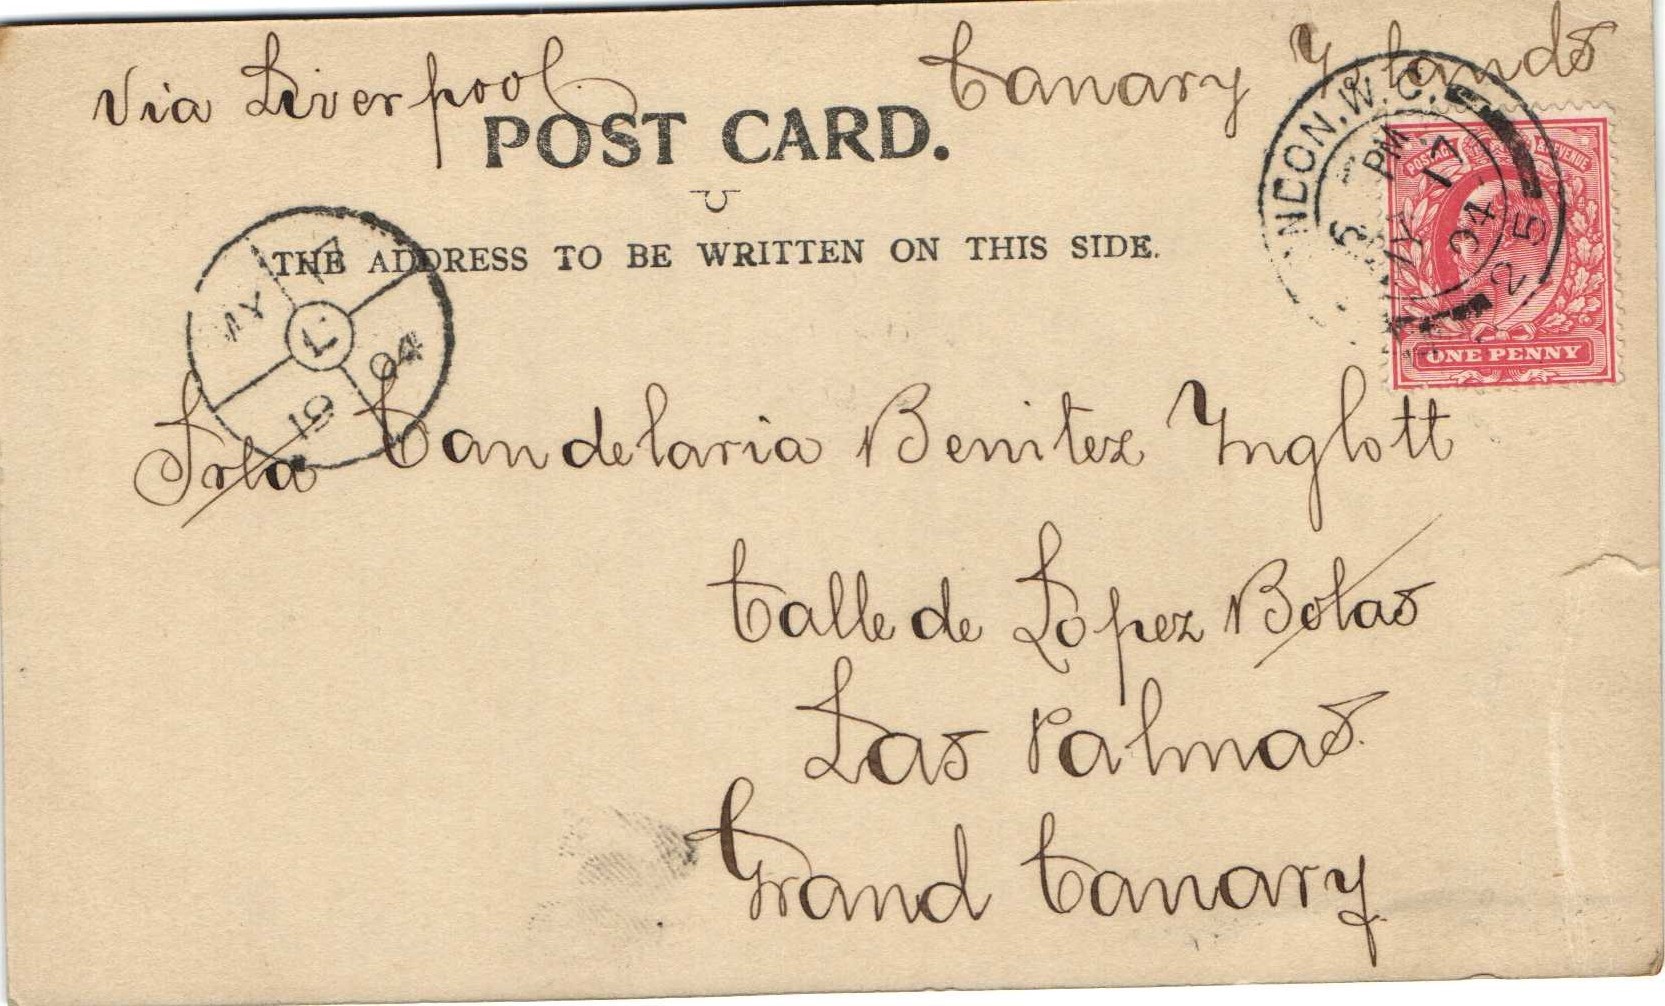 Via Liverpool Canary Islands
POST CARD.
THE ADDRESS TO BE WRITTEN ON THIS SIDE.
MY 17
L
19 04
NDON. W. C.
5 PM
MY 17
04
25
POSTAGE & REVENUE
ONE PENNY
Srta Candelaria Benitez Inglott
Calle de Lopez Botas
Las Palmas.
Grand Canary